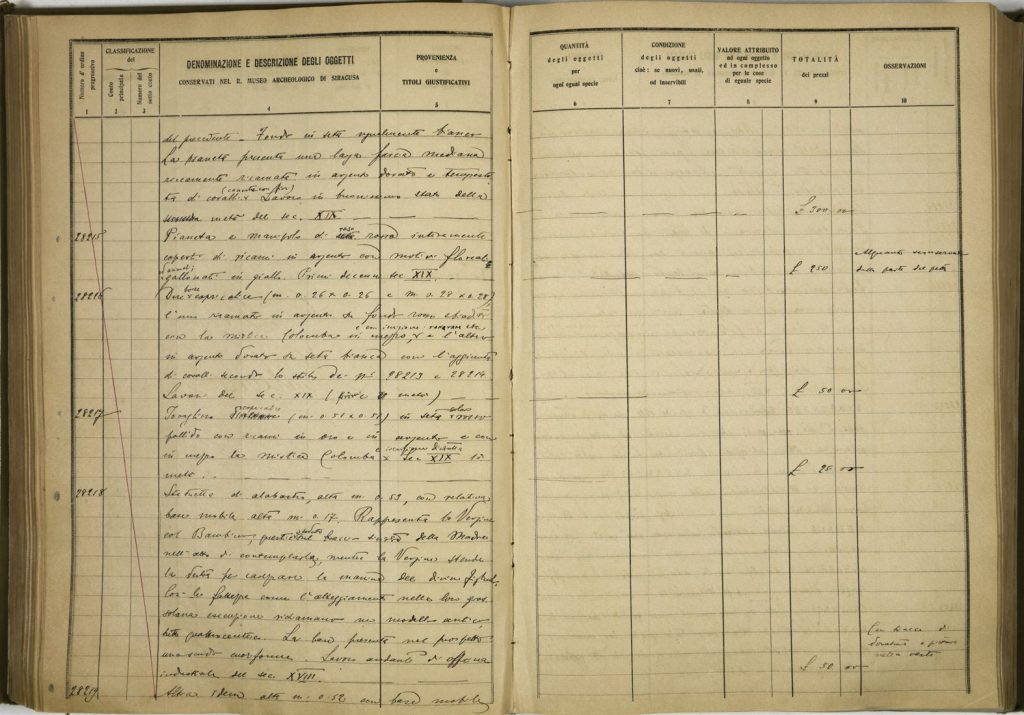 Numero d'ordine progressivo
CLASSIFICAZIONE
del
Conto principale
Numero del sotto conto
DENOMINAZIONE E DESCRIZIONE DEGLI OGGETTI
CONSERVATI NEL R. MUSEO ARCHEOLOGICO DI SIRACUSA
PROVENIENZA
e
TITOLI GIUSTIFICATIVI
1 2 3 4 5
del precedente - Fondo in seta ugualmente bianco
La pianeta presenta una larga fascia mediana
riccamente ricamata in argento dorato e tempesta
ta di coralli. Lavoro in buonissimo stato della
seconda metà del sec. XIX
28215 Pianeta e manipolo di rosa interamente
coperti di ricami in argento con motivi floreali
gallonato in giallo. Primi decenni sec. XIX.
28216 Due copricalice (m. 0.26 x 0.26 e m. 0.28 x 0.28)
l'uno ricamato in argento su fondo rosso
con la mistica Colomba in mezzo, e l'altro
in argento dorato su seta bianca con l'aggiunta
di coralli secondo lo stile dei ni 28213 e 28214
Lavori del sec. XIX
28217 Tovagliera (m. 0.51 x 0.51) in seta
pallido con ricami in oro e in argento e con
in mezzo la mistica Colomba sec XIX 1a
metà.
28218 Statuetta di alabastro, alta m. 0.53, con relativa
base mobile alta m. 0.17. Rappresenta la Vergine
col Bambino, questi sul braccio della Madre
nell'atto di contemplarla, mentre la Vergine stende
la destra per carezzare la manina del divin figliuolo.
Con le fattezze come l'atteggiamento nella loro gros
solana esecuzione richiamano un modello antico
della quattrocentesca. La base presenta nel prospetto
uno scudo cuoriforme. Lavoro andante di officina
industriale del sec. XVIII.
28219 Altra idem alta m. 0.52 con base mobile
QUANTITÀ
degli oggetti
per
ogni egual specie
6
CONDIZIONE
degli oggetti
cioè: se nuovi, usati,
od inservibili
7
VALORE ATTRIBUITO
ad ogni oggetto
ed in complesso
per le cose
di eguale specie
8
TOTALITÀ
dei prezzi
9
OSSERVAZIONI
10
£ 300 00
£ 250
della parte del petto
£ 50 00
£ 25 00
Con tracce di
doratura e
nella veste
£ 50 00